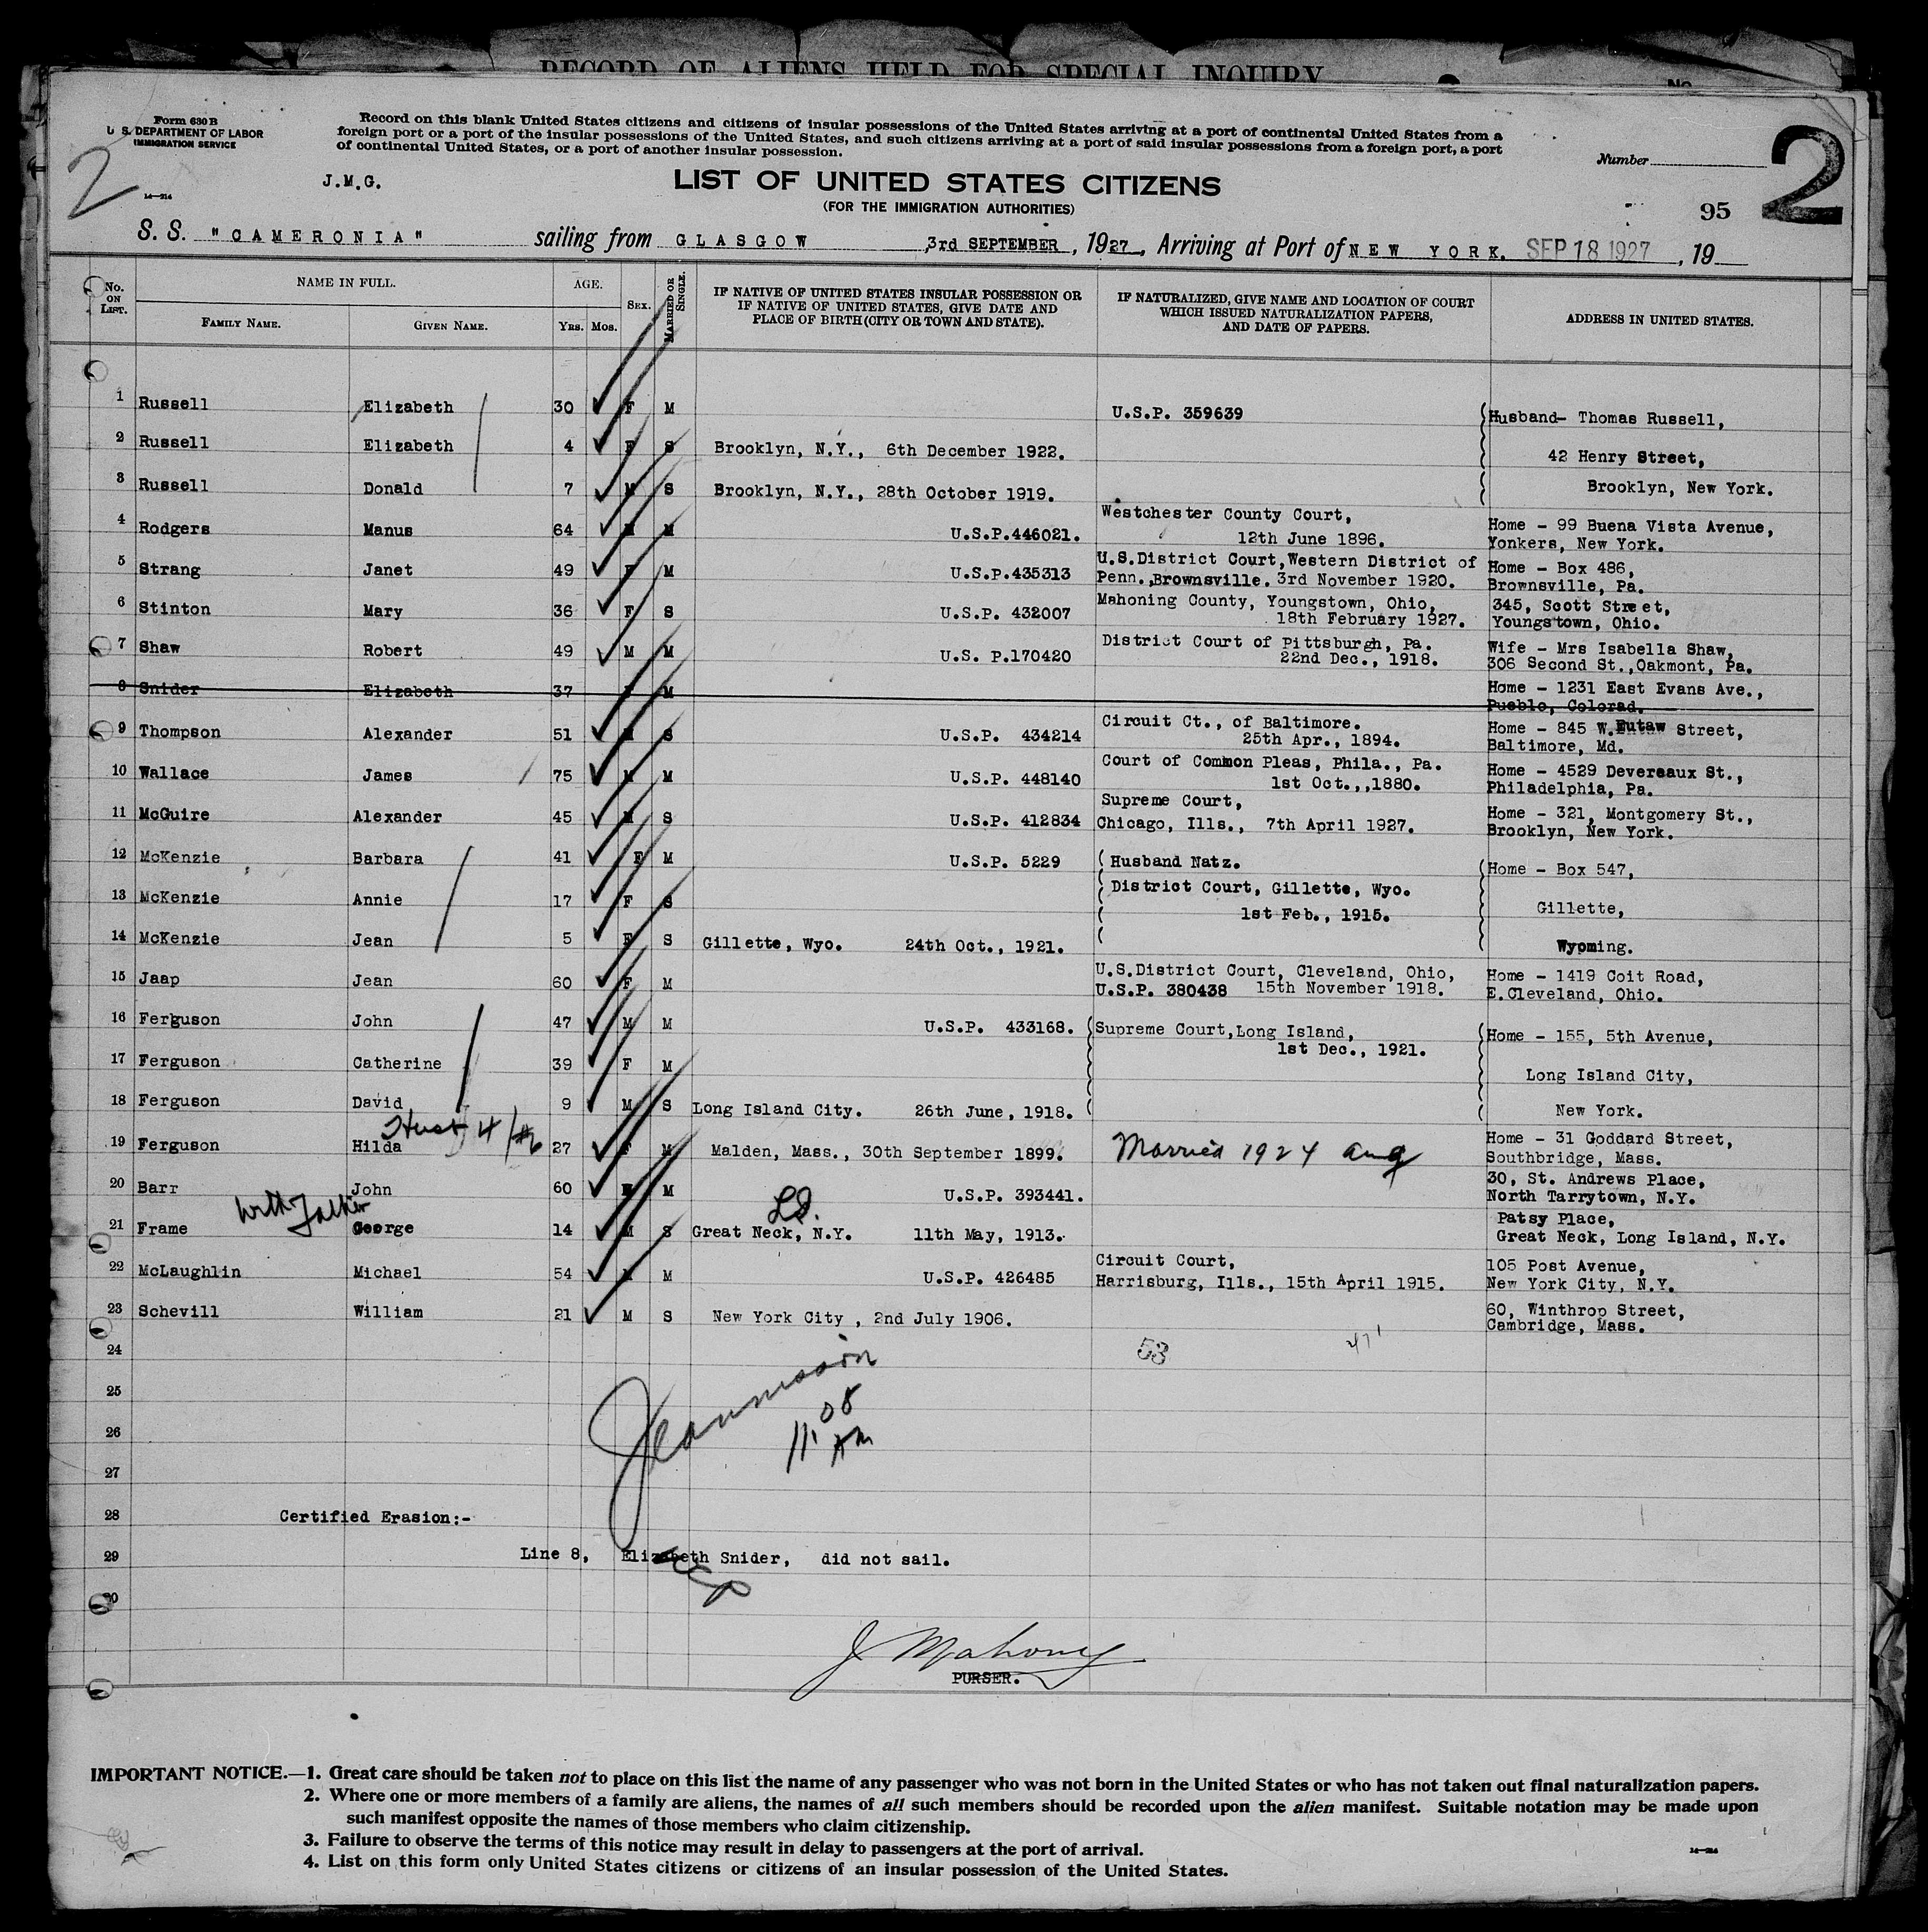 RECORD OF ALIENS HELD FOR SPECIAL INQUIRY
No.
Form 630 B
U. S. DEPARTMENT OF LABOR
IMMIGRATION SERVICE
2
14—214
J.M.G.
Record on this blank United States citizens and citizens of insular possessions of the United States arriving at a port of continental United States from a
foreign port or a port of the insular possessions of the United States, and such citizens arriving at a port of said insular possessions from a foreign port, a port
of continental United States, or a port of another insular possession.
Number
2
LIST OF UNITED STATES CITIZENS
(FOR THE IMMIGRATION AUTHORITIES)
95
S. S. "CAMERONIA" sailing from GLASGOW ,3rd SEPTEMBER, 1927, Arriving at Port of NEW YORK. SEP 18 1927, 19
No. ON LIST. NAME IN FULL. FAMILY NAME. GIVEN NAME. AGE. YRS. MOS. SEX. MARRIED OR SINGLE. IF NATIVE OF UNITED STATES INSULAR POSSESSION OR IF NATIVE OF UNITED STATES, GIVE DATE AND PLACE OF BIRTH (CITY OR TOWN AND STATE). IF NATURALIZED, GIVE NAME AND LOCATION OF COURT WHICH ISSUED NATURALIZATION PAPERS, AND DATE OF PAPERS. ADDRESS IN UNITED STATES.
1 Russell Elizabeth 30 F M U.S.P. 359639 Husband- Thomas Russell,
2 Russell Elizabeth 4 F S Brooklyn, N.Y., 6th December 1922. 42 Henry Street,
3 Russell Donald 7 M S Brooklyn, N.Y., 28th October 1919. Brooklyn, New York.
4 Rodgers Manus 64 M M U.S.P.446021. Westchester County Court, 12th June 1896. Home - 99 Buena Vista Avenue, Yonkers, New York.
5 Strang Janet 49 F M U.S.P.435313 U.S.District Court,Western District of Penn.,Brownsville. 3rd November 1920. Home - Box 486, Brownsville, Pa.
6 Stinton Mary 36 F S U.S.P. 432007 Mahoning County, Youngstown, Ohio, 18th February 1927. 345, Scott Street, Youngstown, Ohio.
7 Shaw Robert 49 M M U.S. P.170420 District Court of Pittsburgh, Pa. 22nd Dec., 1918. Wife - Mrs Isabella Shaw, 306 Second St.,Oakmont, Pa.
8 Snider Elizabeth 37 F M Home - 1231 East Evans Ave., Pueblo, Colorad.
9 Thompson Alexander 51 M S U.S.P. 434214 Circuit Ct., of Baltimore. 25th Apr., 1894. Home - 845 W.Eutaw Street, Baltimore, Md.
10 Wallace James 75 M M U.S.P. 448140 Court of Common Pleas, Phila., Pa. 1st Oct.,,1880. Home - 4529 Devereaux St., Philadelphia, Pa.
11 McGuire Alexander 45 M S U.S.P. 412834 Supreme Court, Chicago, Ills., 7th April 1927. Home - 321, Montgomery St., Brooklyn, New York.
12 McKenzie Barbara 41 F M U.S.P. 5229 Husband Natz. Home - Box 547,
13 McKenzie Annie 17 F S District Court, Gillette, Wyo. 1st Feb., 1915. Gillette,
14 McKenzie Jean 5 F S Gillette, Wyo. 24th Oct., 1921. Wyoming.
15 Jaap Jean 60 F M U.S.District Court, Cleveland, Ohio, U.S.P. 380438 15th November 1918. Home - 1419 Coit Road, E.Cleveland, Ohio.
16 Ferguson John 47 M M U.S.P. 433168. Supreme Court,Long Island, 1st Dec., 1921. Home - 155, 5th Avenue,
17 Ferguson Catherine 39 F M Long Island City,
18 Ferguson David 9 M S Long Island City. 26th June, 1918. New York.
19 Ferguson Hilda 27 F M Malden, Mass., 30th September 1899. Married 1924 Aug Home - 31 Goddard Street, Southbridge, Mass.
20 Barr John 60 M M U.S.P. 393441. 30, St. Andrews Place, North Tarrytown, N.Y.
With Father
21 Frame George 14 M S Great Neck, N.Y. 11th May, 1913. Patsy Place, Great Neck, Long Island, N.Y.
22 McLaughlin Michael 54 M M U.S.P. 426485 Circuit Court, Harrisburg, Ills., 15th April 1915. 105 Post Avenue, New York City, N.Y.
23 Schevill William 21 M S New York City , 2nd July 1906. 60, Winthrop Street, Cambridge, Mass.
24 53 47
25
26 11 08 AM
27
28 Certified Erasion:-
29 Line 8, Elizabeth Snider, did not sail.
30
J Mahony
PURSER.
IMPORTANT NOTICE.—1. Great care should be taken not to place on this list the name of any passenger who was not born in the United States or who has not taken out final naturalization papers.
2. Where one or more members of a family are aliens, the names of all such members should be recorded upon the alien manifest. Suitable notation may be made upon
such manifest opposite the names of those members who claim citizenship.
3. Failure to observe the terms of this notice may result in delay to passengers at the port of arrival.
4. List on this form only United States citizens or citizens of an insular possession of the United States.
14—214